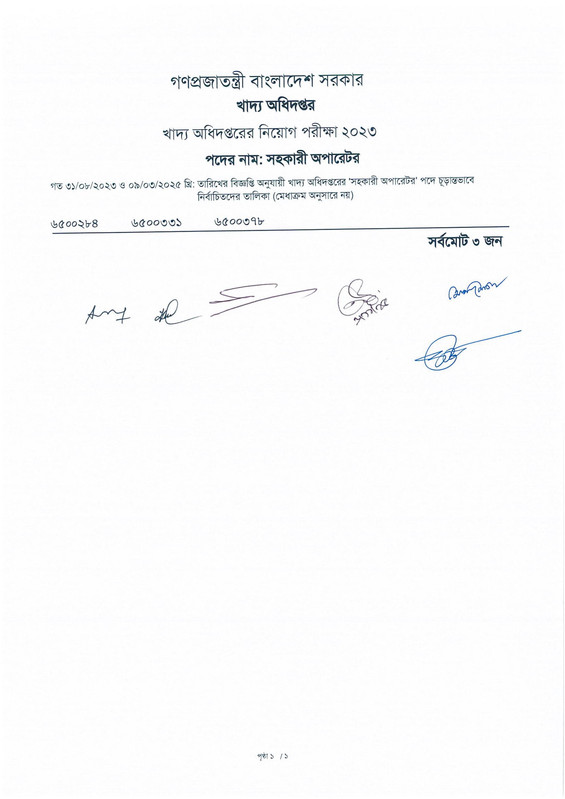 গণপ্রজাতন্ত্রী বাংলাদেশ সরকার
খাদ্য অধিদপ্তর
খাদ্য অধিদপ্তরের নিয়োগ পরীক্ষা ২০২৩
পদের নাম: সহকারী অপারেটর
গত ৩১/০৮/২০২৩ ও ০৯/০৩/২০২৫ খ্রি: তারিখের বিজ্ঞপ্তি অনুযায়ী খাদ্য অধিদপ্তরের 'সহকারী অপারেটর' পদে চূড়ান্তভাবে
নির্বাচিতদের তালিকা (মেধাক্রম অনুসারে নয়)
৬৫০০২৮৪ ৬৫০০৩৩১ ৬৫০০৩৭৮
সর্বমোট ৩ জন
পৃষ্ঠা ১ /১